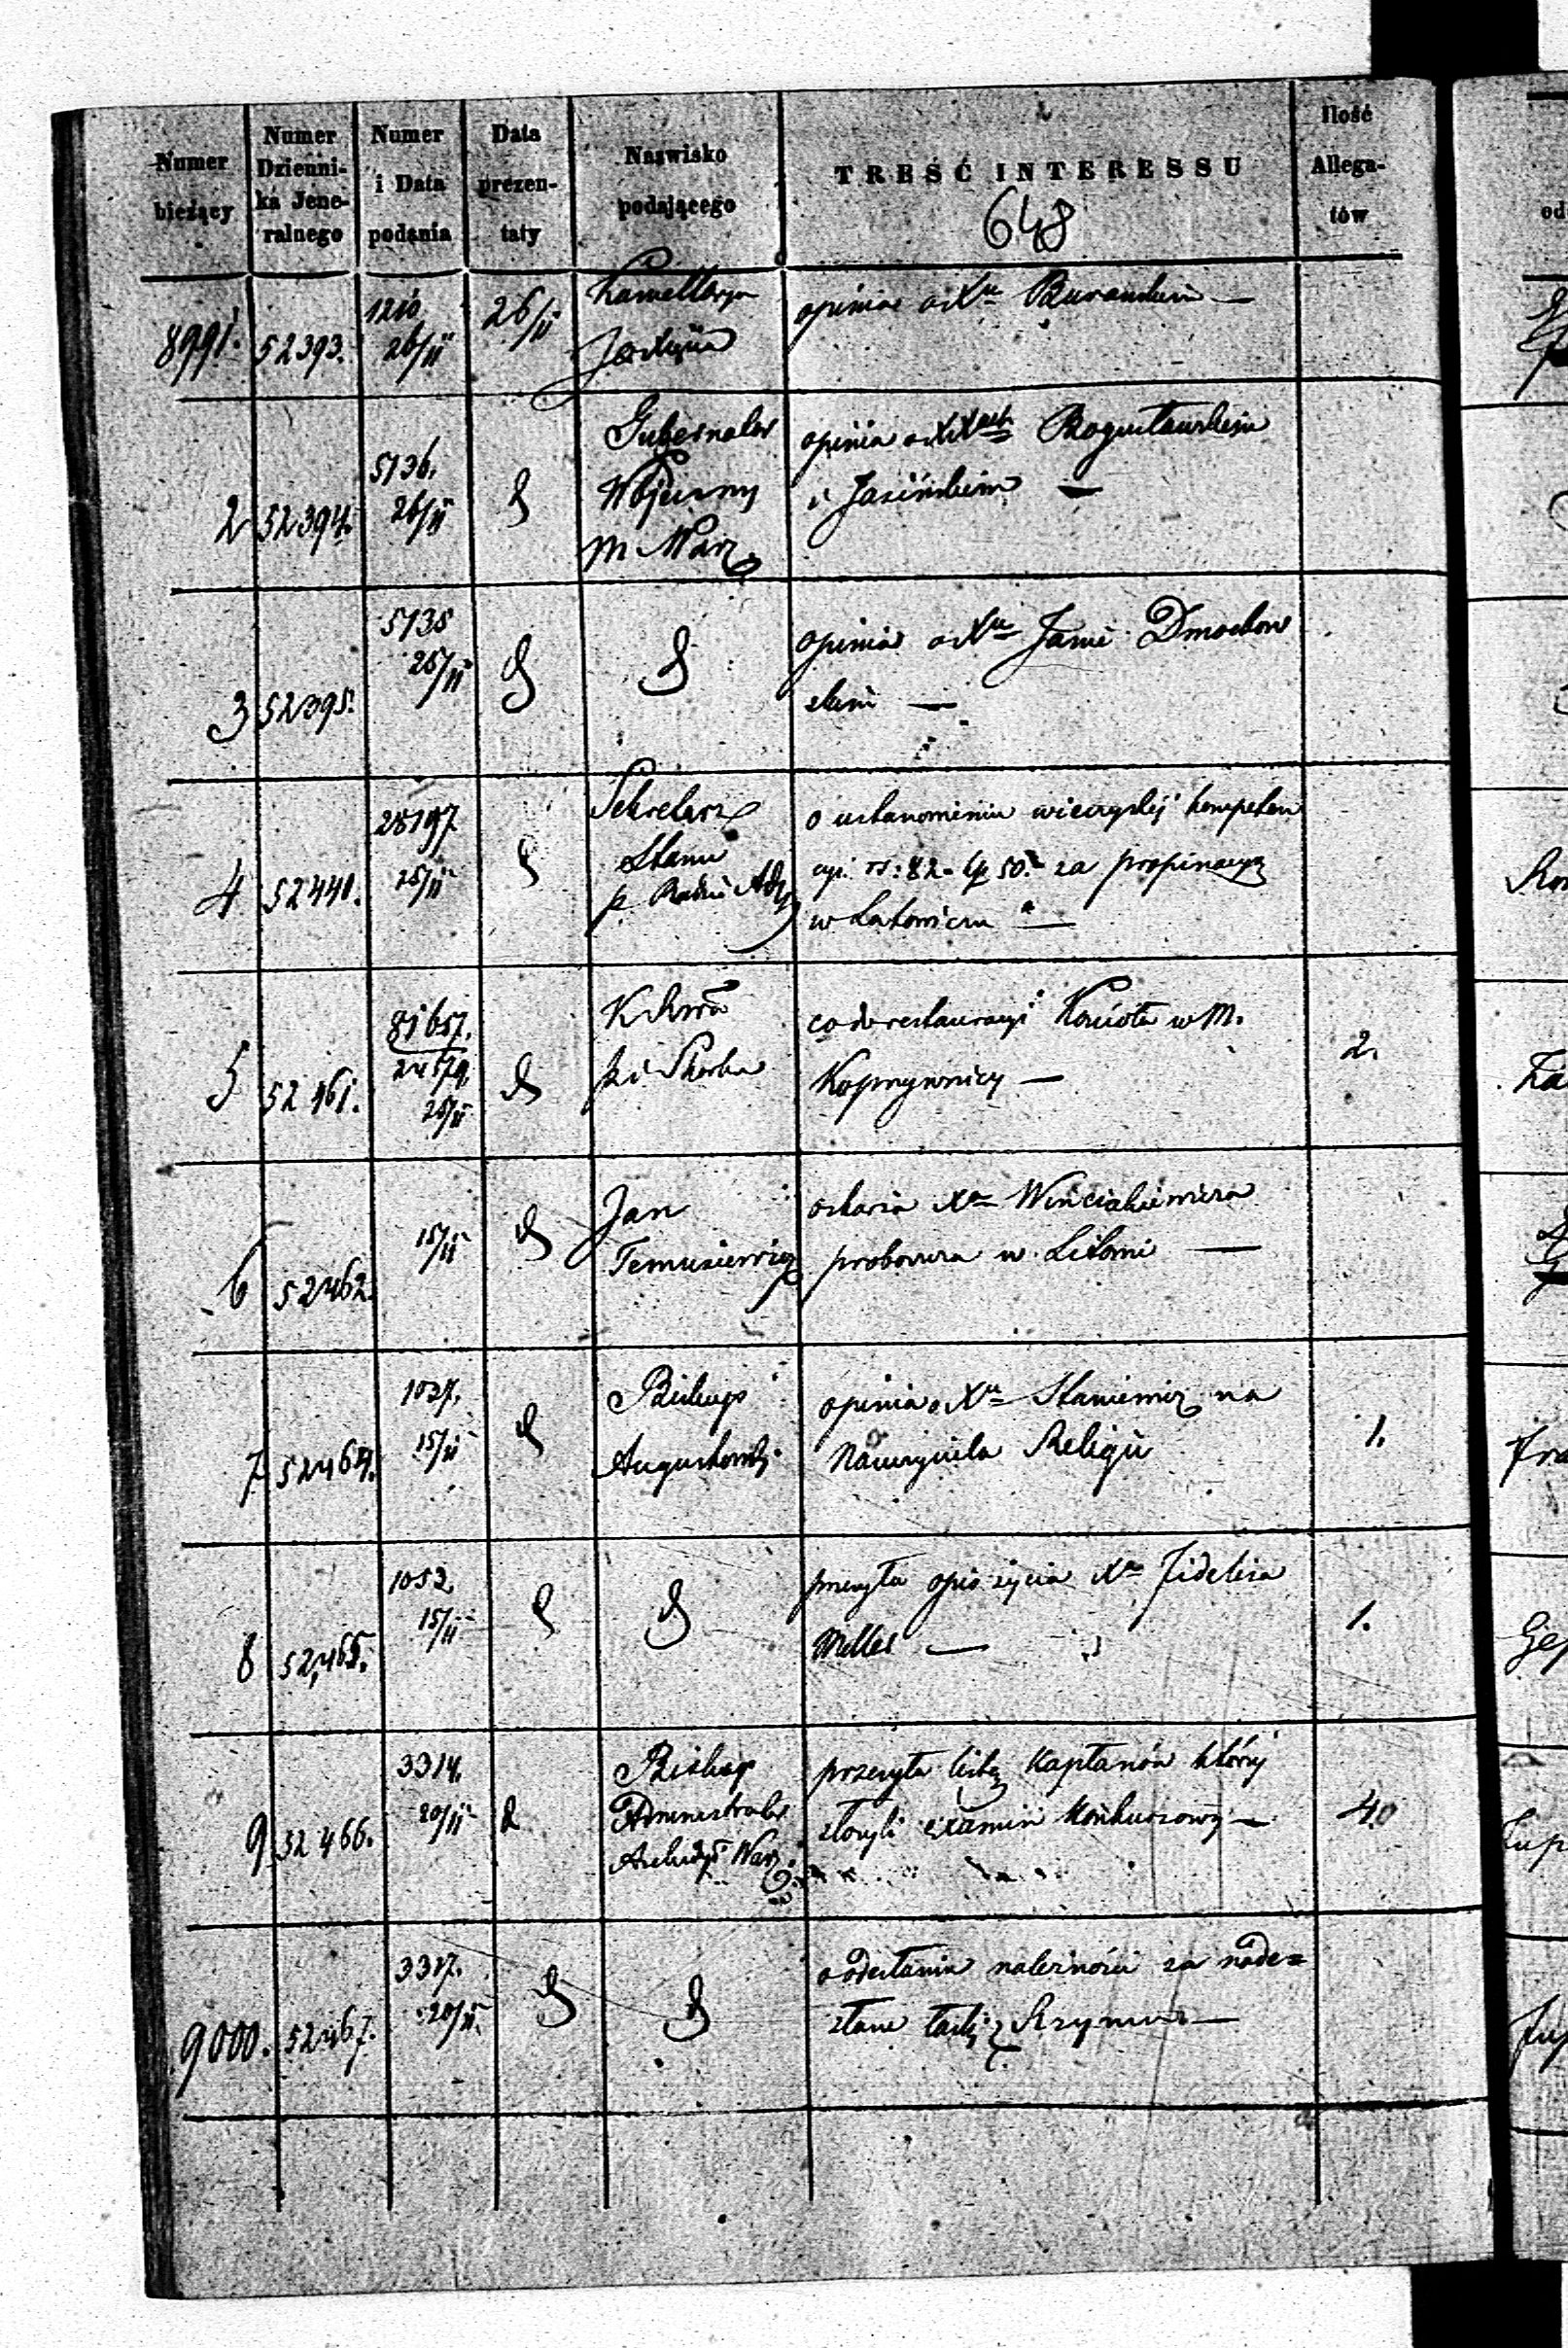 Numer
bieżący
Numer
Dzienni-
ka Jene-
ralnego
Numer
i Data
podania
Data
prezen-
taty
Nazwisko
podającego
TREŚĆ INTERESSU
648
Ilość
Allega-
tów
8991. 52393. 1210 26/11 26/11
opinia o Xu
2 52394. 5136. 26/11
Gubernator
Wojenny
m Warz.
opinia o XX Bogusławskim
i Jasińskim —
3 52395. 5138 25/11
opinia o Xu Janie Dmochow
skim —
4 52440. 28197 25/11
Sekretarz
Stanu
p Radzie Adm
o ustanowieniu wieczystej kompeten
cyi rs: 82 - kp 50. za propinacyą
w Latowiczu —
5 52461. 81657. 24579. 25/11
K Rząd
Skarbu
co do restauracyi Kościoła w M.
Koprzywnicy —
2.
6 52462. 15/11
Jan
oskarża Xa
proboszcza w —
7 52464. 1027. 15/11
Biskup
Augustowski
opinia o Xu Staniewicz na
Nauczyciela Religii
1.
8 52465. 1052. 15/11
przesyła opis życia Xa Fidelisa
Miller —
1.
9 52466. 3314. 20/11
Biskup
Administrator
Archidye Warz.
przesyła listę Kapłanów którzy
złożyli examin Konkursowy —
40
9000. 52467. 3317. 20/11
o odesłanie należności za nade=
słane z Rzymu —